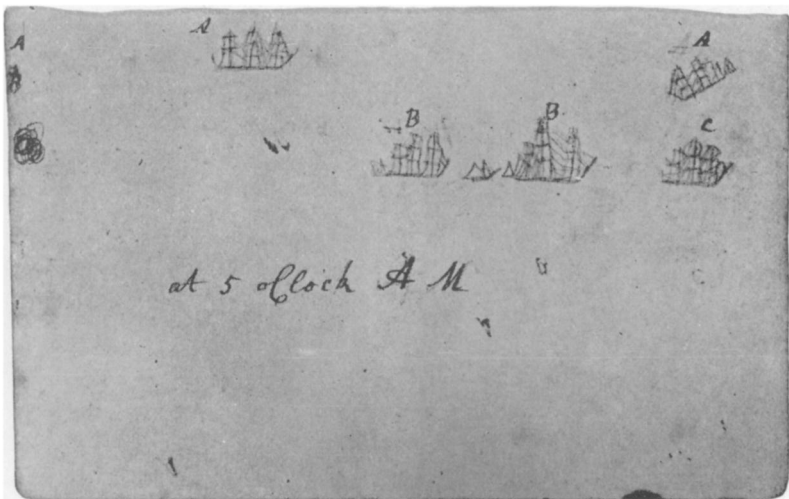 A
A
A
B
B
C
at 5 oClock AM